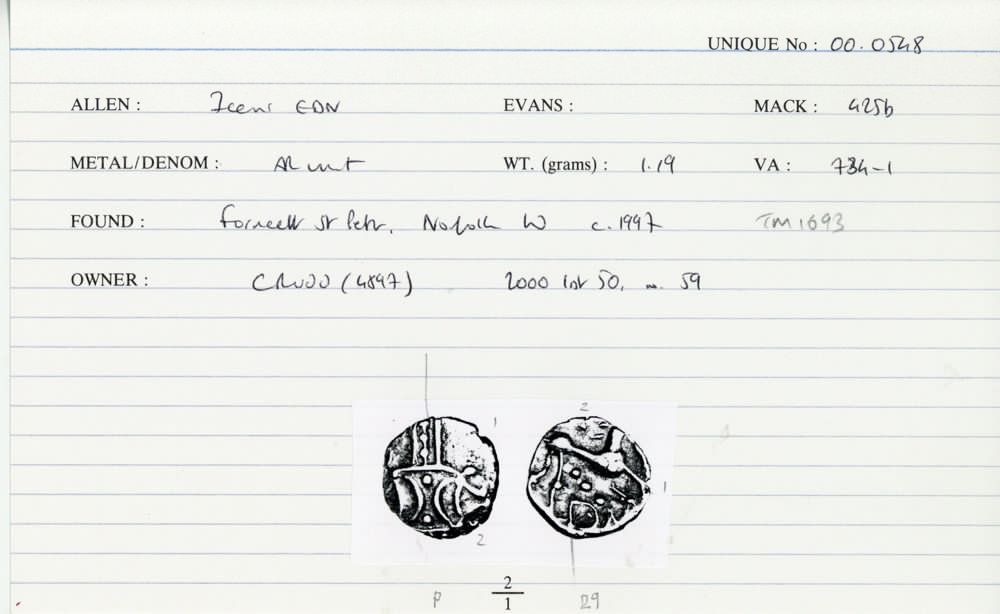 UNIQUE No : 00.0548
ALLEN : Iceni EDN EVANS : MACK : 425b
METAL/DENOM : AR unit WT. (grams) : 1.19 VA : 734-1
FOUND : Forncett St Peter, Norfolk W c. 1997 TM1693
OWNER : CRUDD (4897) 2000 list 50, no. 59
2
1
1
2
P 2/1 29